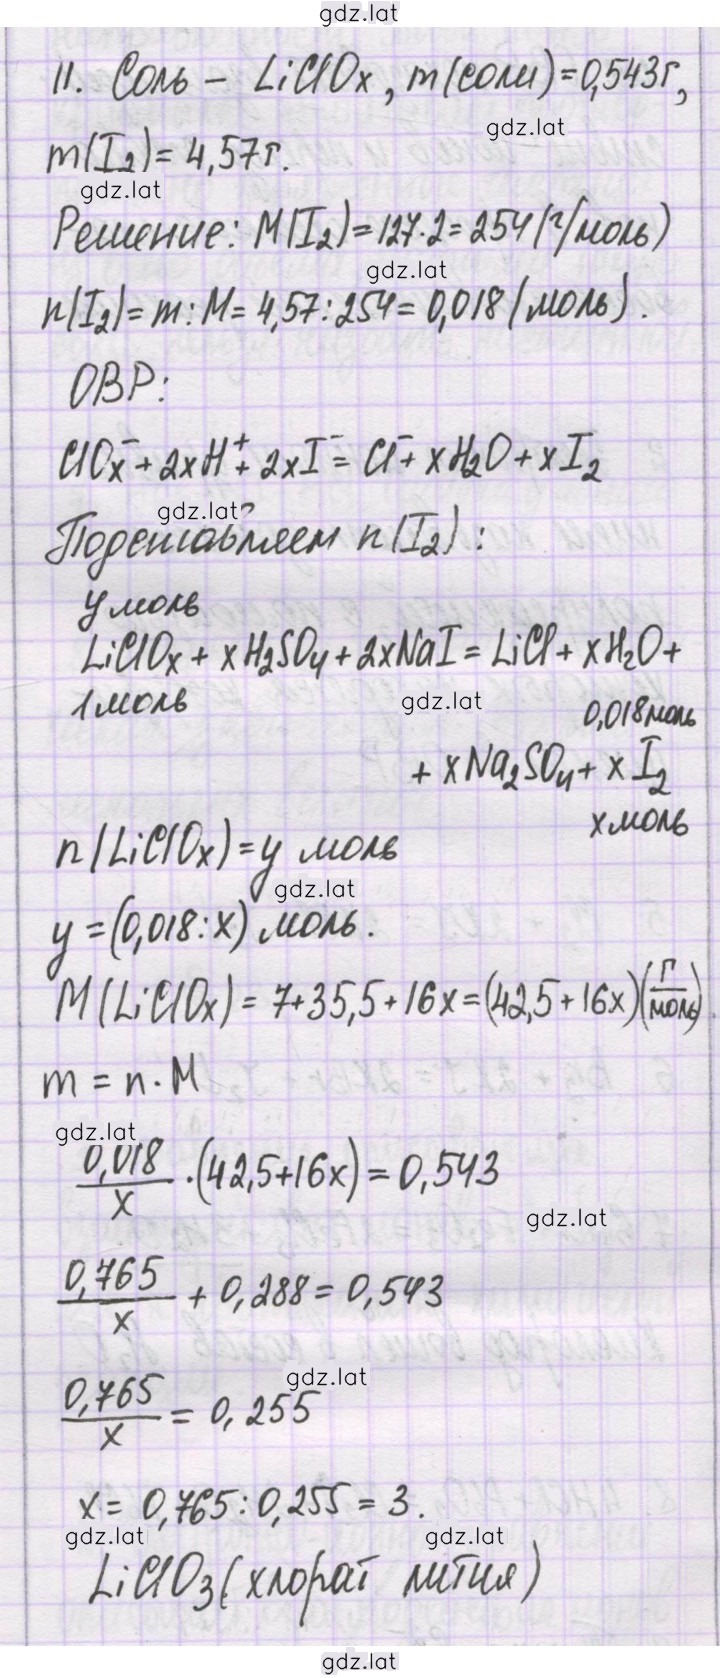 gdz.lat
11. Соль – LiClOx, m(соли)=0,543г,
gdz.lat
m(I2)= 4,57г.
gdz.lat
Решение: M(I2)=127·2=254(г/моль)
gdz.lat
n(I2)=m:M=4,57:254=0,018(моль).
ОВР:
ClOx⁻+2xH⁺+2xI⁻=Cl⁻+xH2O+xI2
gdz.lat
Подставляем n(I2):
y моль
LiClOx+xH2SO4+2xNaI=LiCl+xH2O+
1 моль
gdz.lat
0,018 моль
+xNa2SO4+xI2
x моль
n(LiClOx)=y моль
gdz.lat
y=(0,018:x) моль.
M(LiClOx)=7+35,5+16x=(42,5+16x)(г/моль)
m=n·M
gdz.lat
0,018/x·(42,5+16x)=0,543
gdz.lat
0,765/x+0,288=0,543
gdz.lat
0,765/x=0,255
x=0,765:0,255=3.
gdz.lat gdz.lat
LiClO3(хлорат лития)
gdz.lat